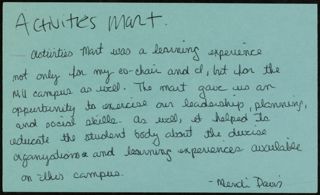 Activities Mart.
Activities Mart was a learning experience
not only for my co-chair and I, but for the
MU campus as well. The mart gave us an
opportunity to exercise our leadership, planning,
and social skills. As well, it helped to
educate the student body about the diverse
organizations and learning experiences available
on this campus.
- Mendi Davis